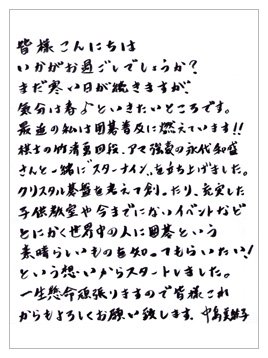 皆様こんにちは
いかがお過ごしでしょうか?
まだ寒い日が続きますが、
気分は春♪といきたいところです。
最近の私は囲碁普及に燃えています!!
棋士の竹清勇四段、アマ強豪の永代和盛
さんと一緒に"スターナイン"を立ち上げました。
クリスタル碁盤を考えて創ったり、充実した
子供教室や今までにないイベントなど
とにかく世界中の人に囲碁という
素晴らしいものを知ってもらいたい!
という想いからスタートしました。
一生懸命頑張りますので皆様これ
からもよろしくお願い致します。中島美絵子